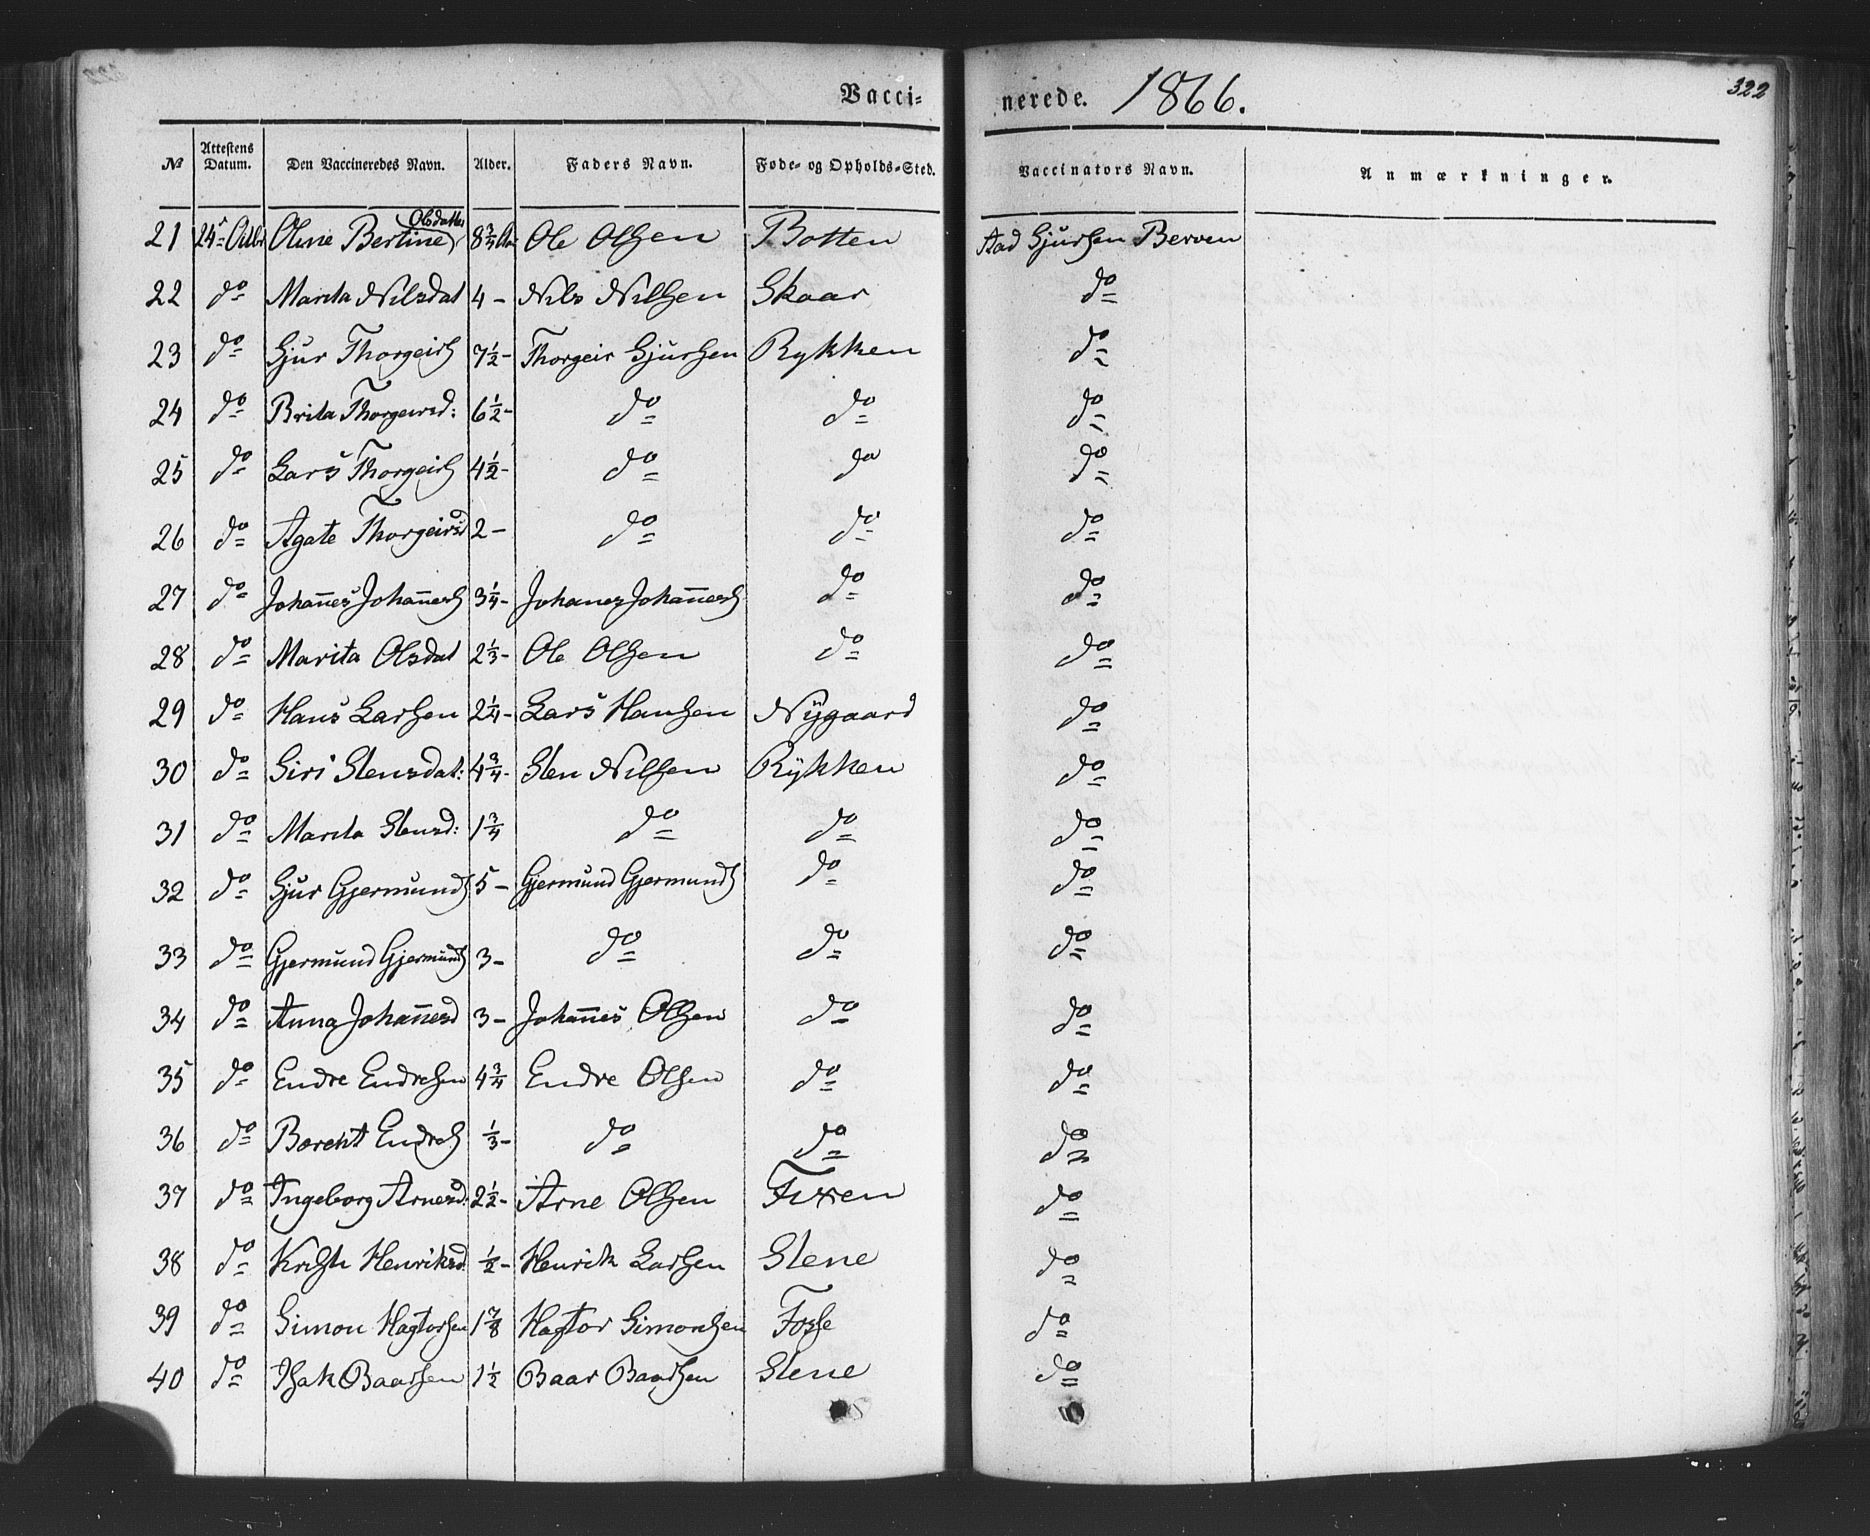 Vacci- nerede. 1866. 322
№ Attestens Datum. Den Vaccineredes Navn. Alder. Faders Navn. Føde- og Opholds-Sted. Vaccinators Navn. Anmærkninger.
21 24de Octbr Oline Bertine Olsdatter 8 3/4 Aar Ole Olsen Botten Aad Sjursen Berven
22 do Marita Nilsdat 4 - Nils Nilsen Skaar do
23 do Sjur Thorgeirs 7 1/2 - Thorgeir Sjursen Rykken do
24 do Brita Thorgeirsd: 6 1/2 - do do do
25 do Lars Thorgeirs 4 1/2 - do do do
26 do Agate Thorgeirsd 2 - do do do
27 do Johannes Johanness 3 1/4 - Johanes Johanness do do
28 do Marita Olsdat 2 1/3 - Ole Olsen do do
29 do Hans Larsen 2 1/4 - Lars Hansen Nygaard do
30 do Siri Stensdat: 4 3/4 - Sten Nilsen Rykken do
31 do Marita Stensd: 1 3/4 do do do
32 do Sjur Gjermunds 5 - Gjermund Gjermunds do do
33 do Gjermund Gjermunds 3 - do do do
34 do Anna Johannesd 3 - Johannes Olsen do do
35 do Endre Endresen 4 3/4 Endre Olsen do do
36 do Børent Endres 1/3 - do do do
37 do Ingeborg Arnesd: 2 1/2 - Arne Olsen Fixen do
38 do Kristi Henriksd: 1/2 - Henrik Larsen Stene do
39 do Simon Hagtorsen 1 7/8 Hagtor Simonsen Fosse do
40 do Isak Baarsen 1 1/2 Baar Baardsen Stene do